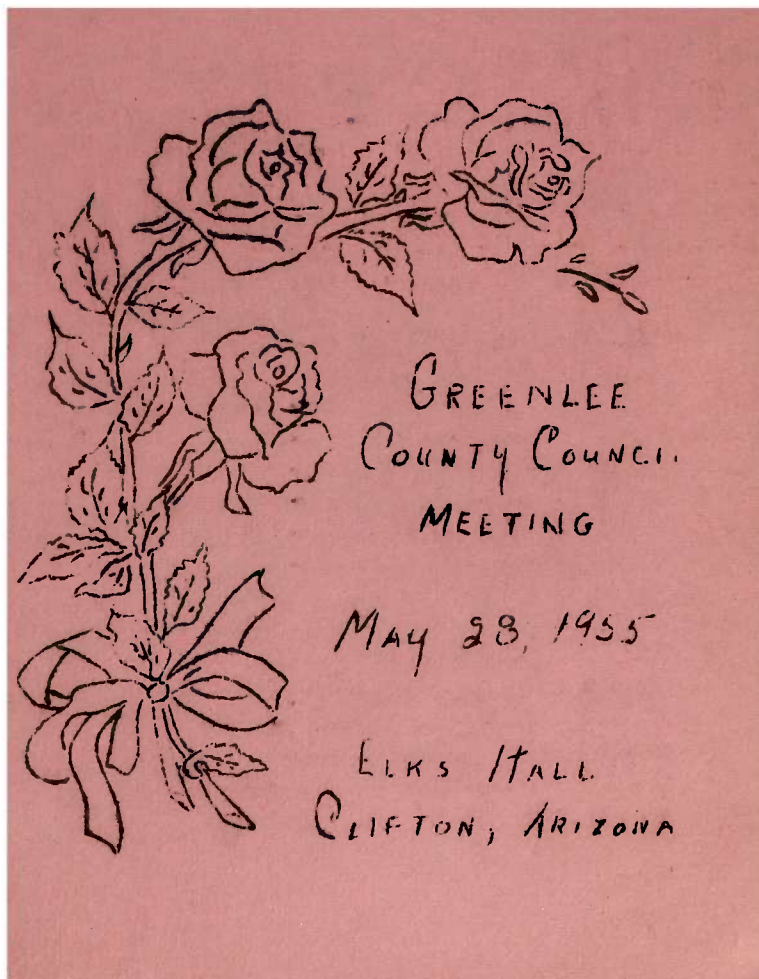 GREENLEE
COUNTY COUNCIL
MEETING
MAY 28, 1955
ELKS HALL
CLIFTON, ARIZONA